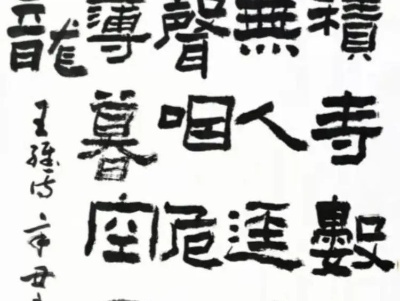 積寺數
無人逕
聲咽危
薄暮空
龍
王維詩辛丑